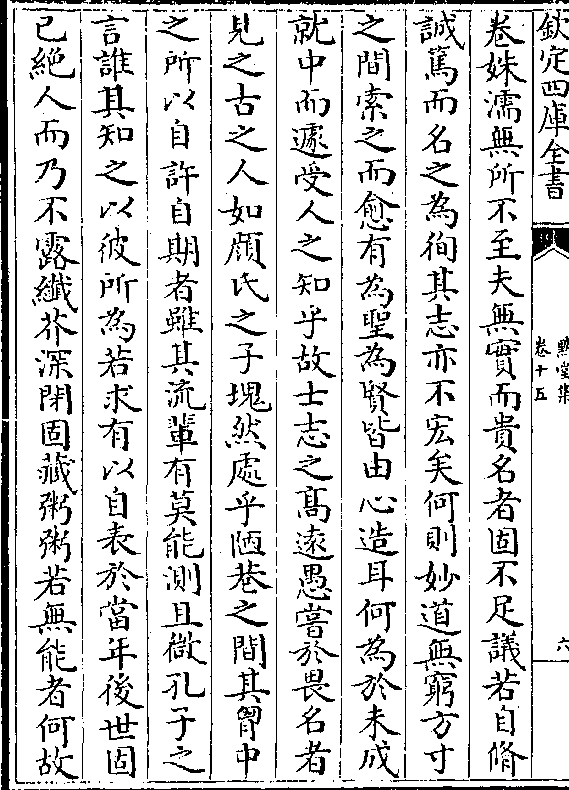 欽定四庫全書
卷姝濡無所不至夫無實而貴名者固不足議若自脩
誠篤而名之為徇其志亦不宏矣何則妙道無窮方寸
之間索之而愈有為聖為賢皆由心造耳何為於未成
就中而遽受人之知乎故士志之高遠愚嘗於畏名者
見之古之人如顔氏之子塊然處乎陋巷之間其胷中
之所以自許自期者雖其流輩有莫能測且微孔子之
言誰其知之以彼所為若求有以自表於當年後世固
已絶人而乃不露纖芥深閉固藏粥粥若無能者何故
卷十五
六